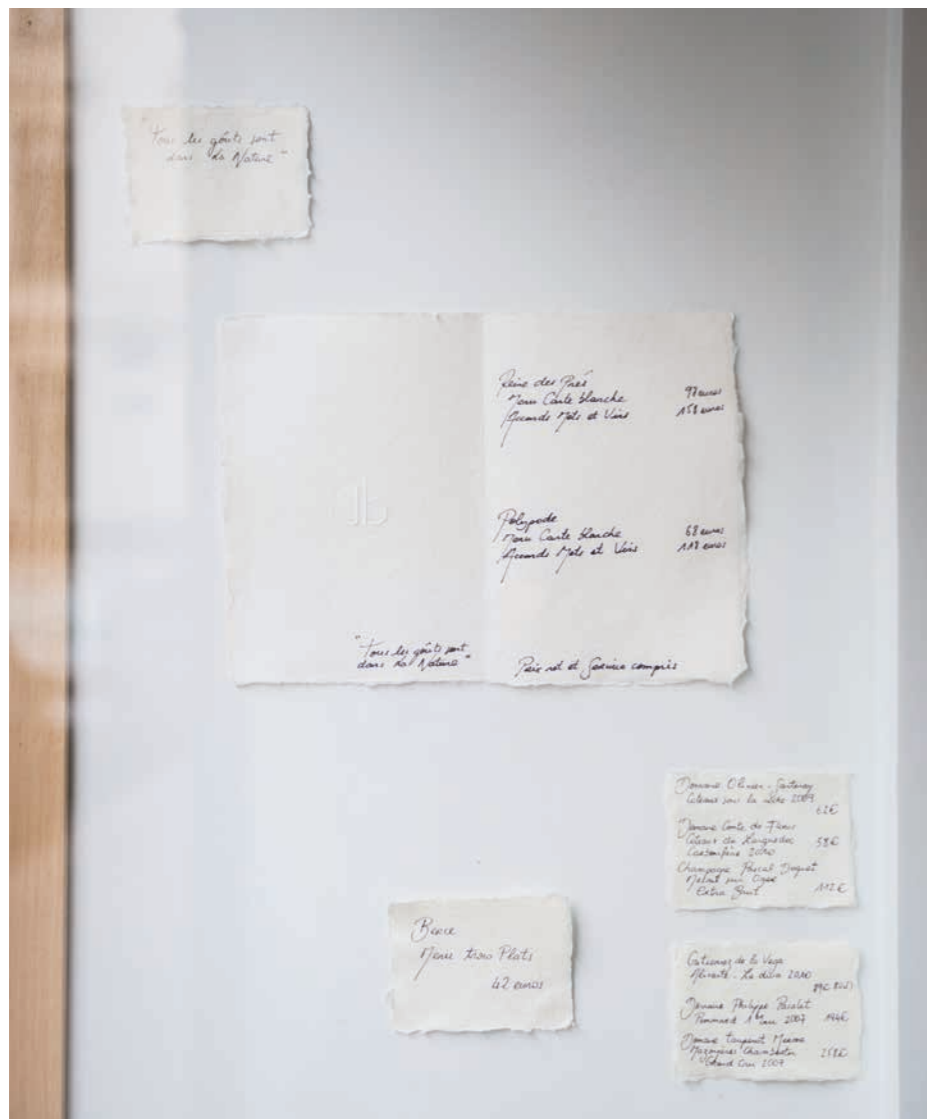 "Tous les goûts sont
dans la Nature"
Reine des Prés
Menu Carte blanche 97 euros
Accords Mets et Vins 158 euros
Polypode
Menu Carte blanche 68 euros
Accords Mets et Vins 118 euros
"Tous les goûts sont
dans la Nature"
Prix net et Service compris
Berce
Menu trois Plats
42 euros
Domaine Olivier - Santenay
Coteaux sous la Roche 2009
62€
Domaine Conte de Floris
Coteaux du Languedoc 58€
2010
Champagne Pascal Doquet
Extra Brut 112€
Gutierrez de la Vega
Alicante - La diva 2010
Domaine Philippe Pacalet
Pommard 1er cru 2007 144€
Domaine Taupenot Merme
Mazoyères Chambertin 258€
Grand Cru 2007